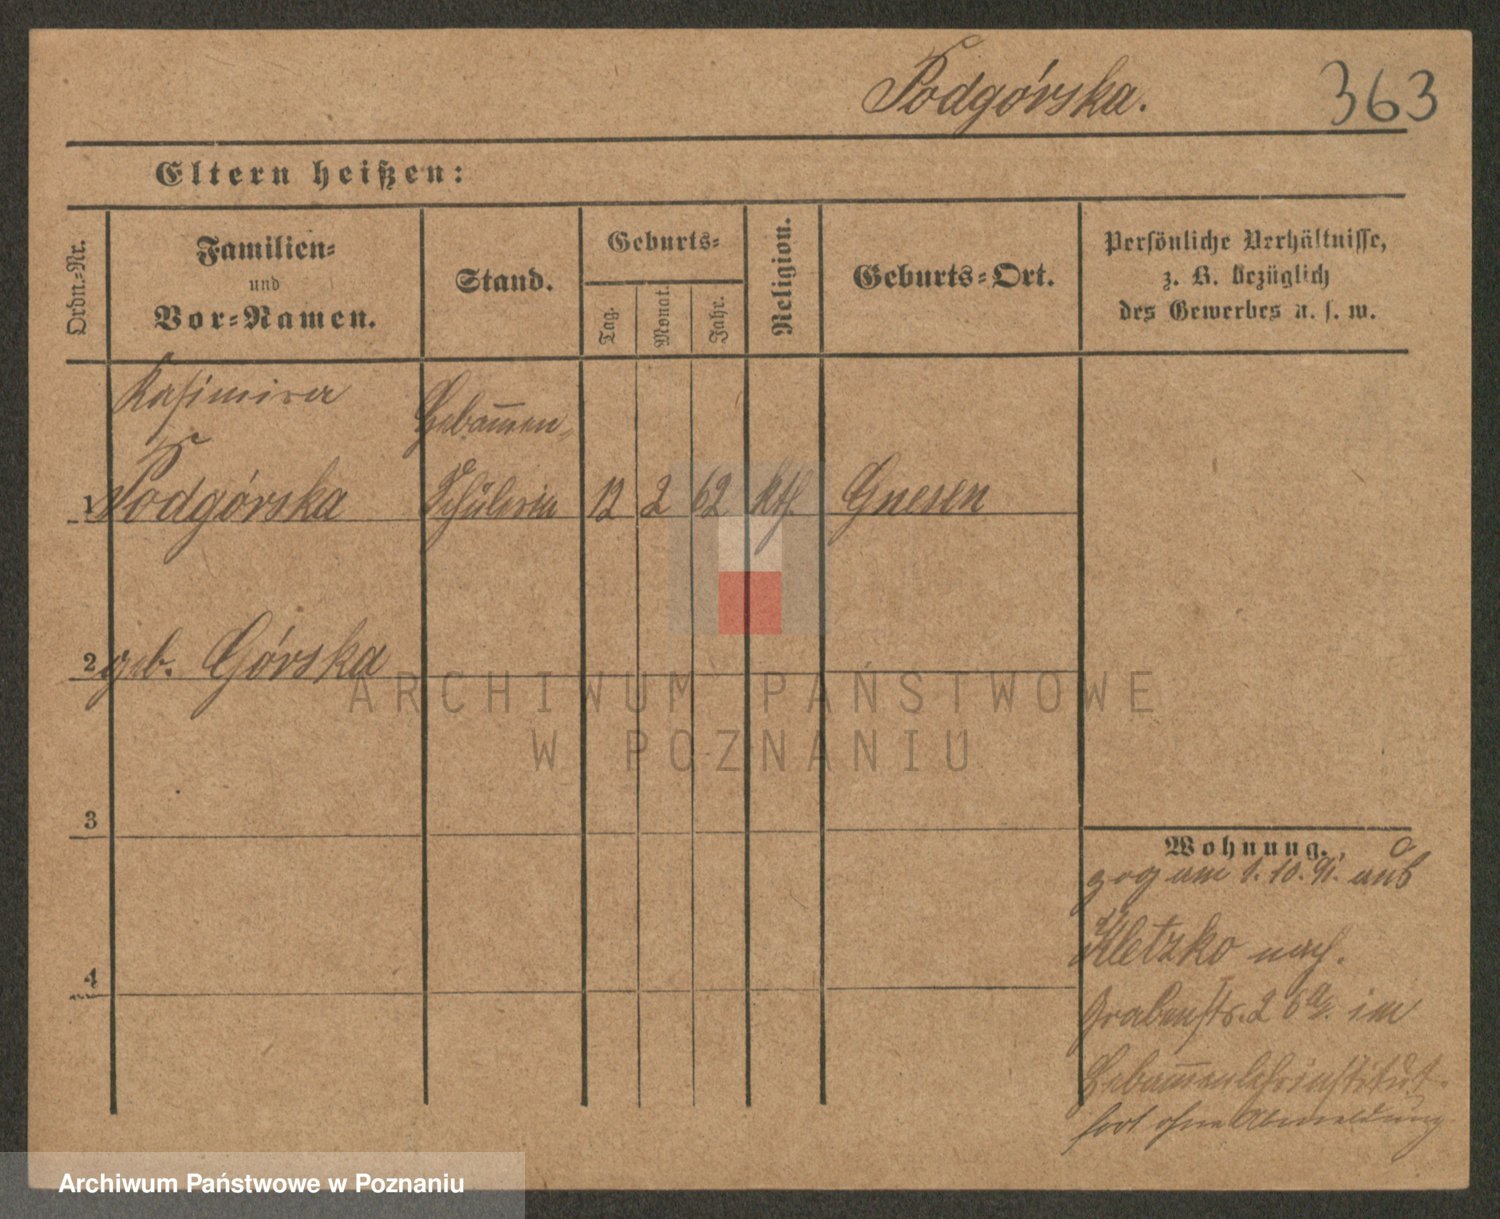 Podgórska.
363
Eltern heißen:
Ordn.-Nr.
Familien-
und
Vor-Namen.
Stand.
Geburts-
Tag.
Monat.
Jahr.
Religion.
Geburts-Ort.
Persönliche Verhältnisse,
z. B. bezüglich
des Gewerbes u. s. w.
Kasimira
Hebam̅en-
1 Podgórska Schülerin 12 2 62 kth Gnesen
2 geb. Górska
3
4
Wohnung.
zog am 1.10.91. aus
Kletzko nach.
Grabenstr. 26 im
Hebam̅enlehrinstitut.
fort ohne Abmeldung
ARCHIWUM PAŃSTWOWE
W POZNANIU
Archiwum Państwowe w Poznaniu